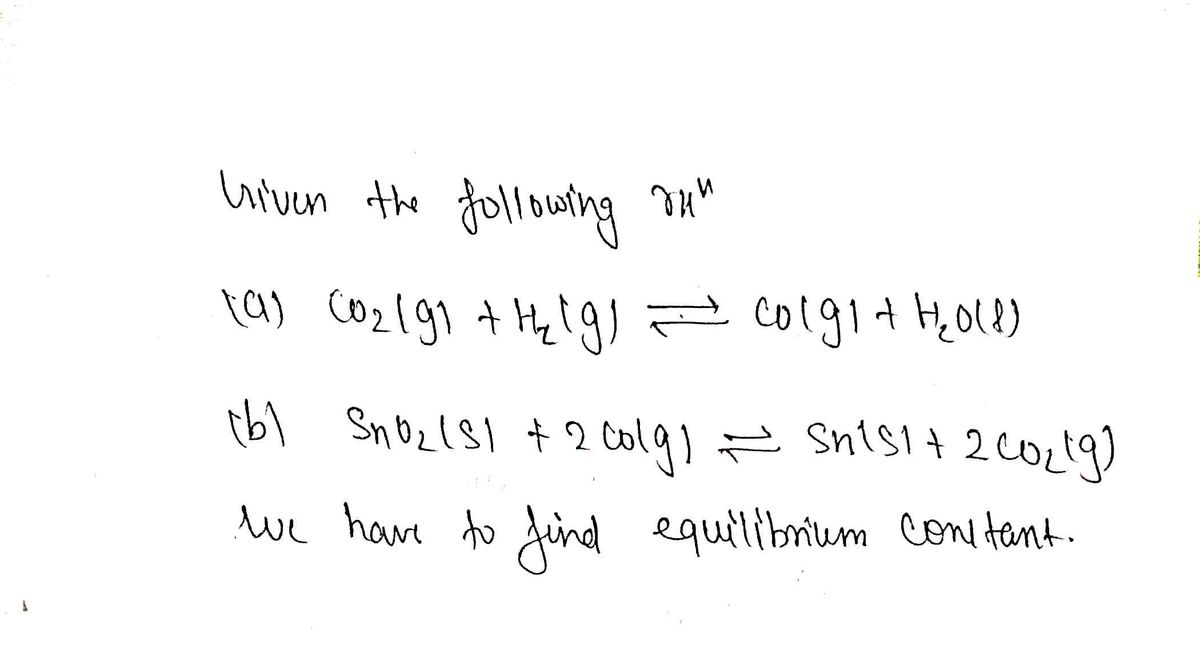 Given the following rxⁿ
(a) CO₂(g) + H₂(g) ⇌ CO(g) + H₂O(l)
(b) SnO₂(s) + 2CO(g) ⇌ Sn(s) + 2CO₂(g)
We have to find equilibrium constant.